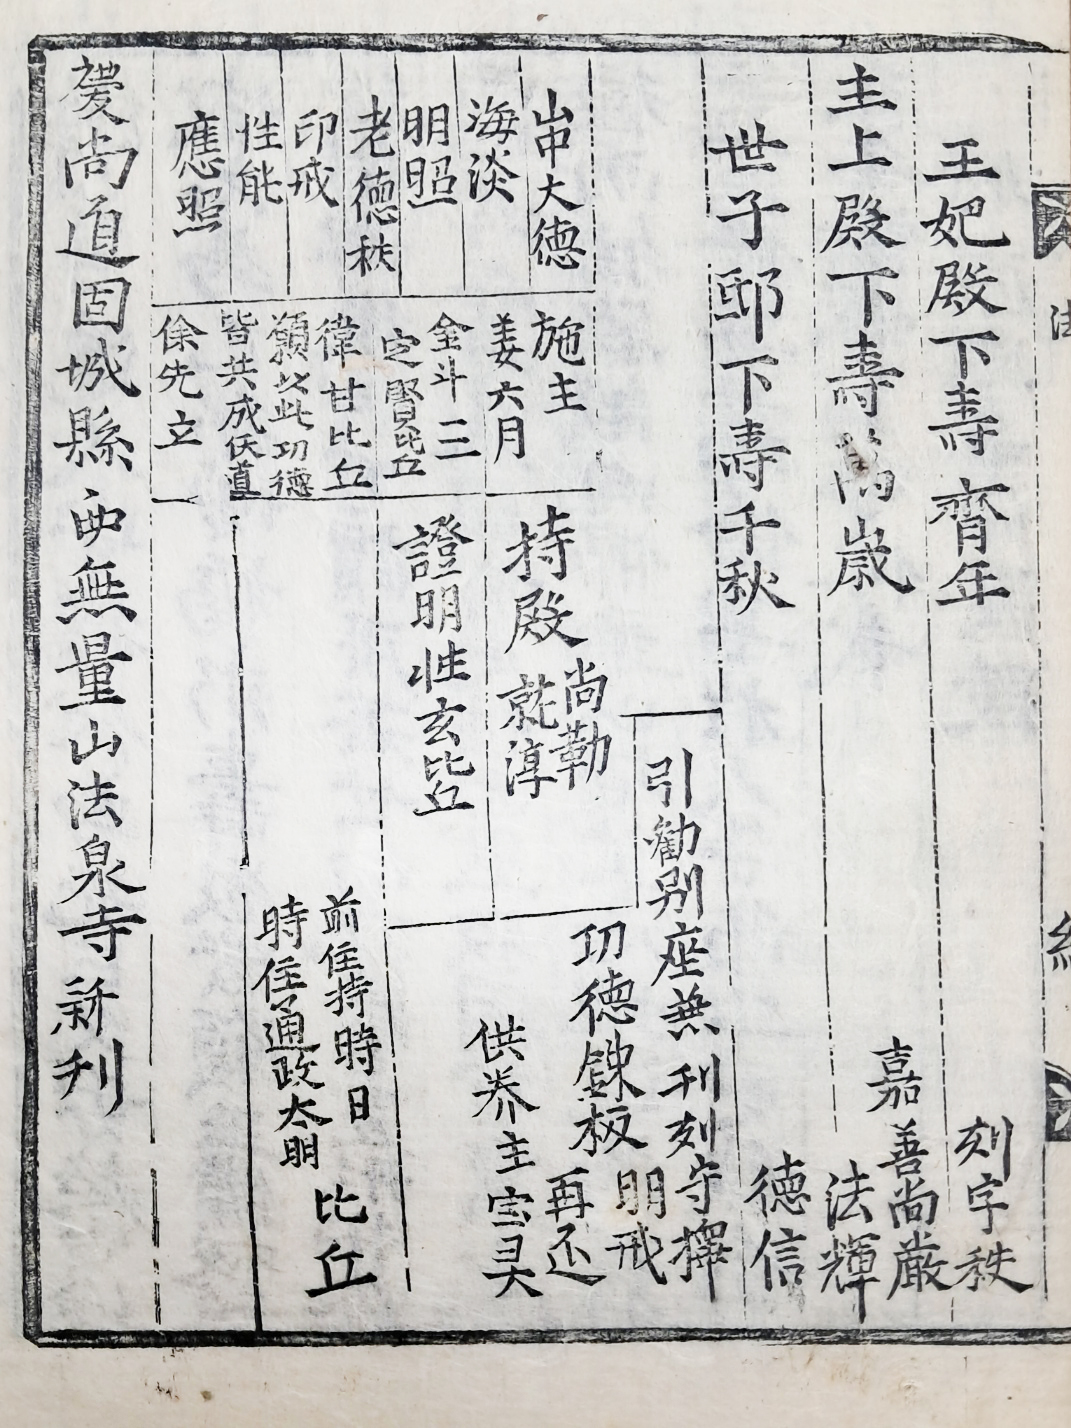 王妃殿下壽齊年
刻字秩
主上殿下壽萬歲
嘉善尚嚴
法輝
世子邸下壽千秋
德信
引勸别座兼刊刻守擇
明戒
功德鍊板
再还
供养主宝灵
山中大德
海淡
明照
老德秩
印戒
性能
應照
施主
姜六月
金斗三
定賢比丘
偉甘比丘
願以此功德
皆共成仸道
徐先立一
持殿
尚勒
就淳
證明性玄比丘
前住持時日
比丘
時住通政太明
慶尚道固城縣西無量山法泉寺新刊
法